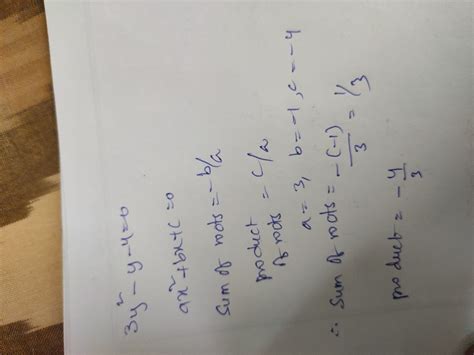 3y² - y - 4 = 0
ax² + bx + c = 0
sum of roots = -b/a
product of roots = c/a
a = 3, b = -1, c = -4
∴ sum of roots = -(-1)/3 = 1/3
product = -4/3